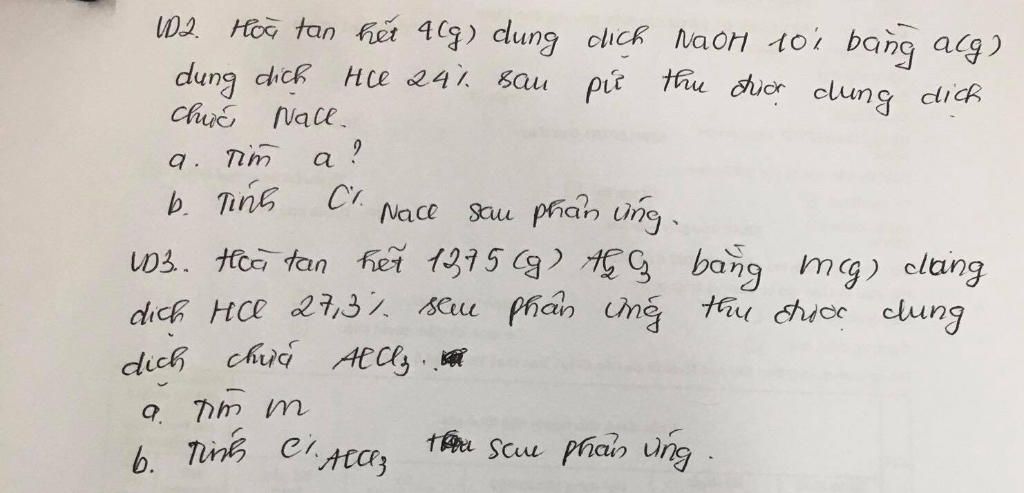 VD2. Hoà tan hết 4(g) dung dịch NaOH 10% bằng a(g)
dung dịch HCl 24% sau pứ thu được dung dịch
chứa NaCl.
a. Tìm a?
b. Tính C% NaCl sau phản ứng.
VD3.. Hoà tan hết 12,75(g) Al2O3 bằng m(g) dung
dịch HCl 27,3% sau phản ứng thu được dung
dịch chứa AlCl3.
a. Tìm m
b. Tính C% AlCl3 sau phản ứng.